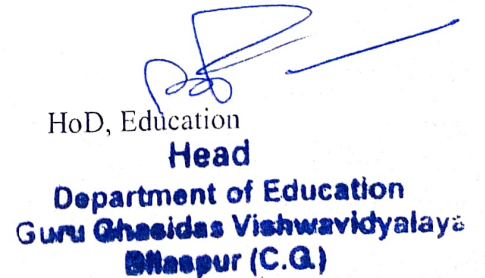 HoD, Education
Head
Department of Education
Guru Ghasidas Vishwavidyalaya
Bilaspur (C.G.)